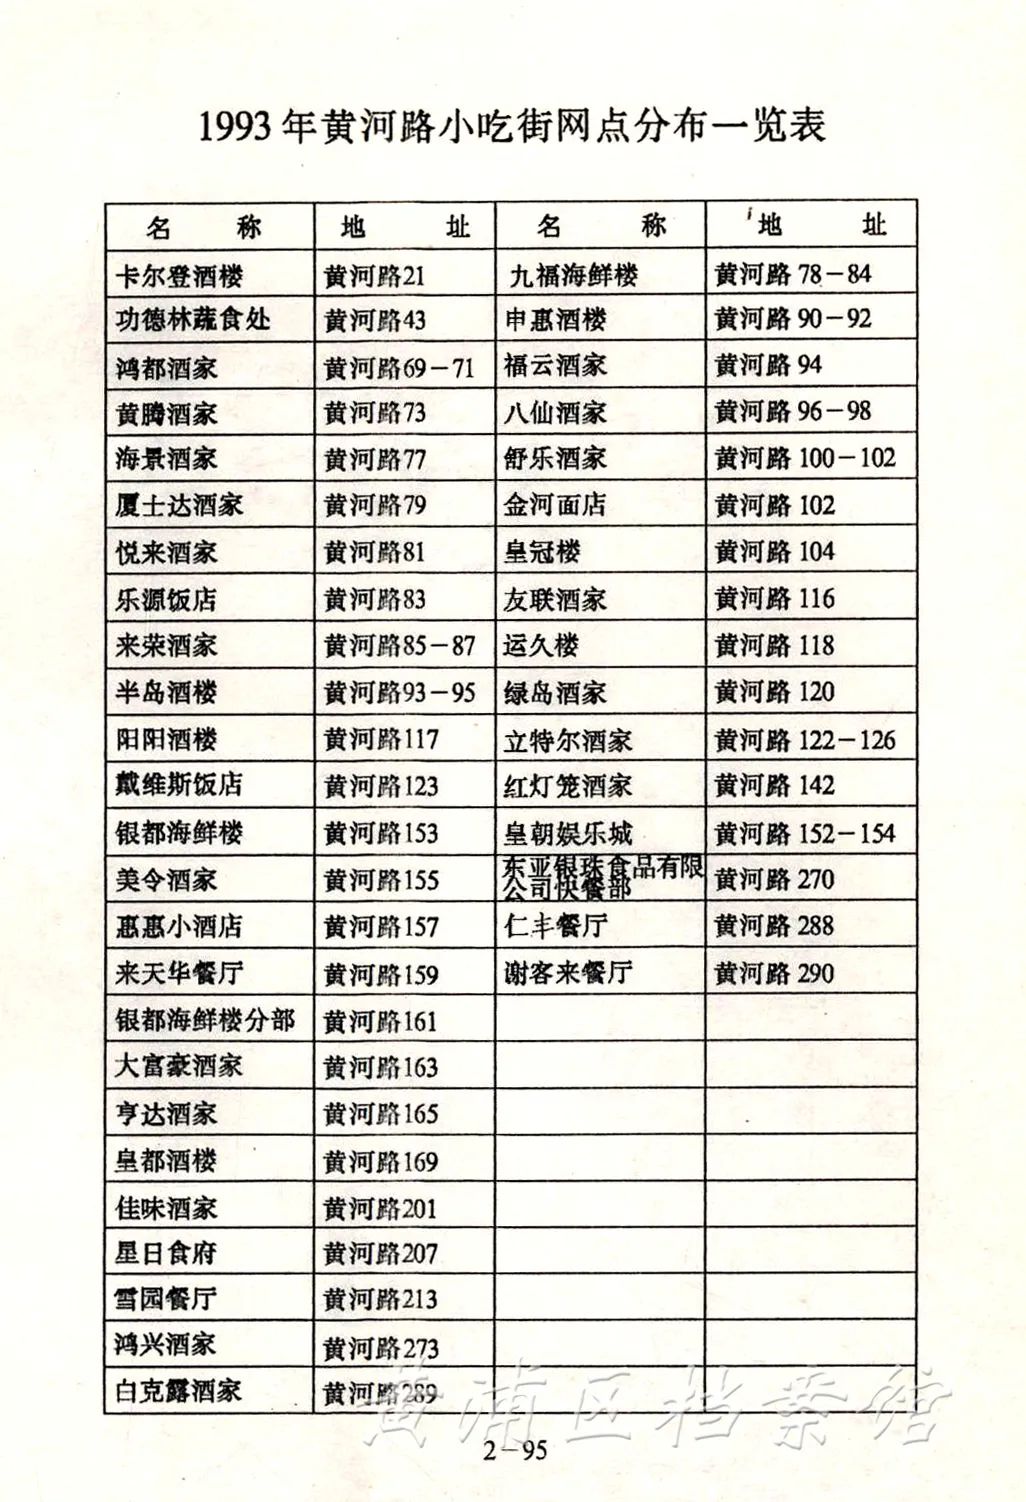 1993年黄河路小吃街网点分布一览表
名 称 地 址 名 称 地 址
卡尔登酒楼 黄河路21 九福海鲜楼 黄河路 78-84
功德林蔬食处 黄河路43 申惠酒楼 黄河路 90-92
鸿都酒家 黄河路69-71 福云酒家 黄河路 94
黄腾酒家 黄河路73 八仙酒家 黄河路 96-98
海景酒家 黄河路77 舒乐酒家 黄河路 100-102
厦士达酒家 黄河路79 金河面店 黄河路 102
悦来酒家 黄河路81 皇冠楼 黄河路 104
乐源饭店 黄河路83 友联酒家 黄河路 116
来荣酒家 黄河路85-87 运久楼 黄河路 118
半岛酒楼 黄河路93-95 绿岛酒家 黄河路 120
阳阳酒楼 黄河路117 立特尔酒家 黄河路 122-126
戴维斯饭店 黄河路123 红灯笼酒家 黄河路 142
银都海鲜楼 黄河路153 皇朝娱乐城 黄河路 152-154
美令酒家 黄河路155 东亚银珠食品有限公司快餐部 黄河路 270
惠惠小酒店 黄河路157 仁丰餐厅 黄河路 288
来天华餐厅 黄河路159 谢客来餐厅 黄河路 290
银都海鲜楼分部 黄河路161
大富豪酒家 黄河路163
亨达酒家 黄河路165
皇都酒楼 黄河路169
佳味酒家 黄河路201
星日食府 黄河路207
雪园餐厅 黄河路213
鸿兴酒家 黄河路273
白克露酒家 黄河路289
黄浦区档案馆
2-95